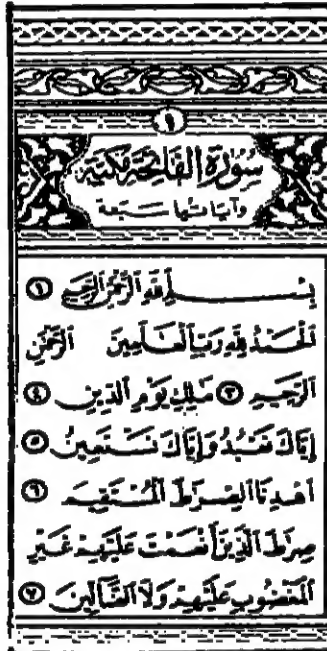 ١
سُورَةُ الفَاتِحَةِ مَكِّيَّة
وآياتها سبعة
بِسْمِ اللَّهِ الرَّحْمَٰنِ الرَّحِيمِ ١
الْحَمْدُ لِلَّهِ رَبِّ الْعَالَمِينَ الرَّحْمَٰنِ
الرَّحِيمِ ٣ مَٰلِكِ يَوْمِ الدِّينِ ٤
إِيَّاكَ نَعْبُدُ وَإِيَّاكَ نَسْتَعِينُ ٥
اهْدِنَا الصِّرَاطَ الْمُسْتَقِيمَ ٦
صِرَاطَ الَّذِينَ أَنْعَمْتَ عَلَيْهِمْ غَيْرِ
الْمَغْضُوبِ عَلَيْهِمْ وَلَا الضَّالِّينَ ٧